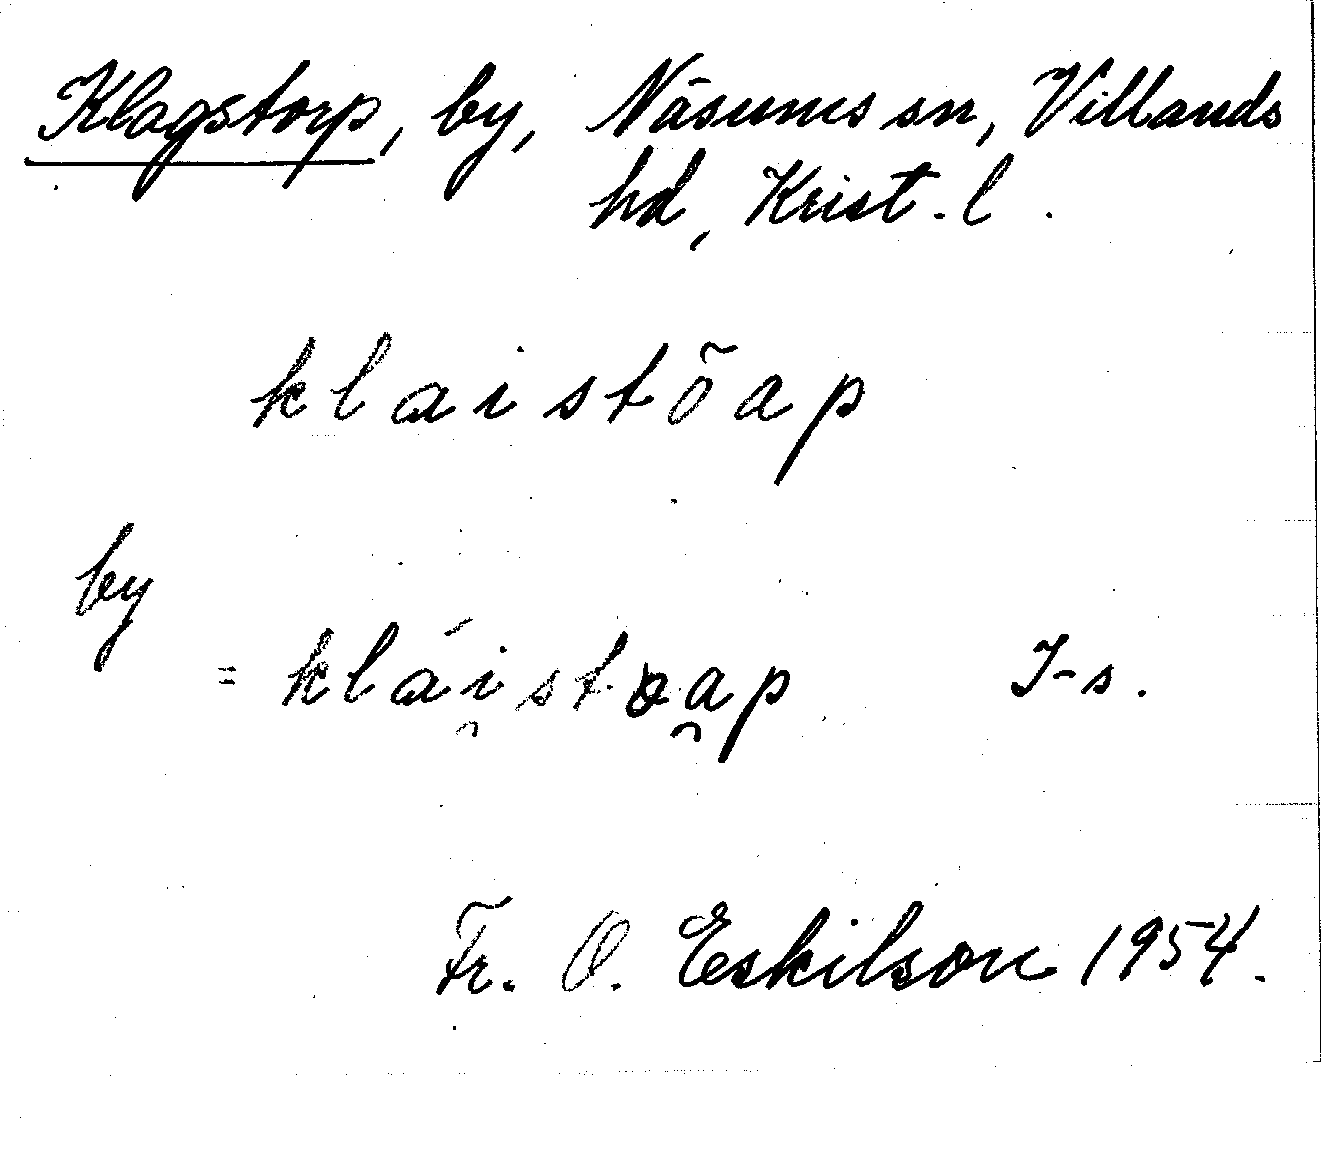 Klagstorp, by, Näsums sn, Villands
hd, Krist. l.
klaistõap
by
= klái̯stoa̯p J-s.
Fr. O. Eskilson 1954.